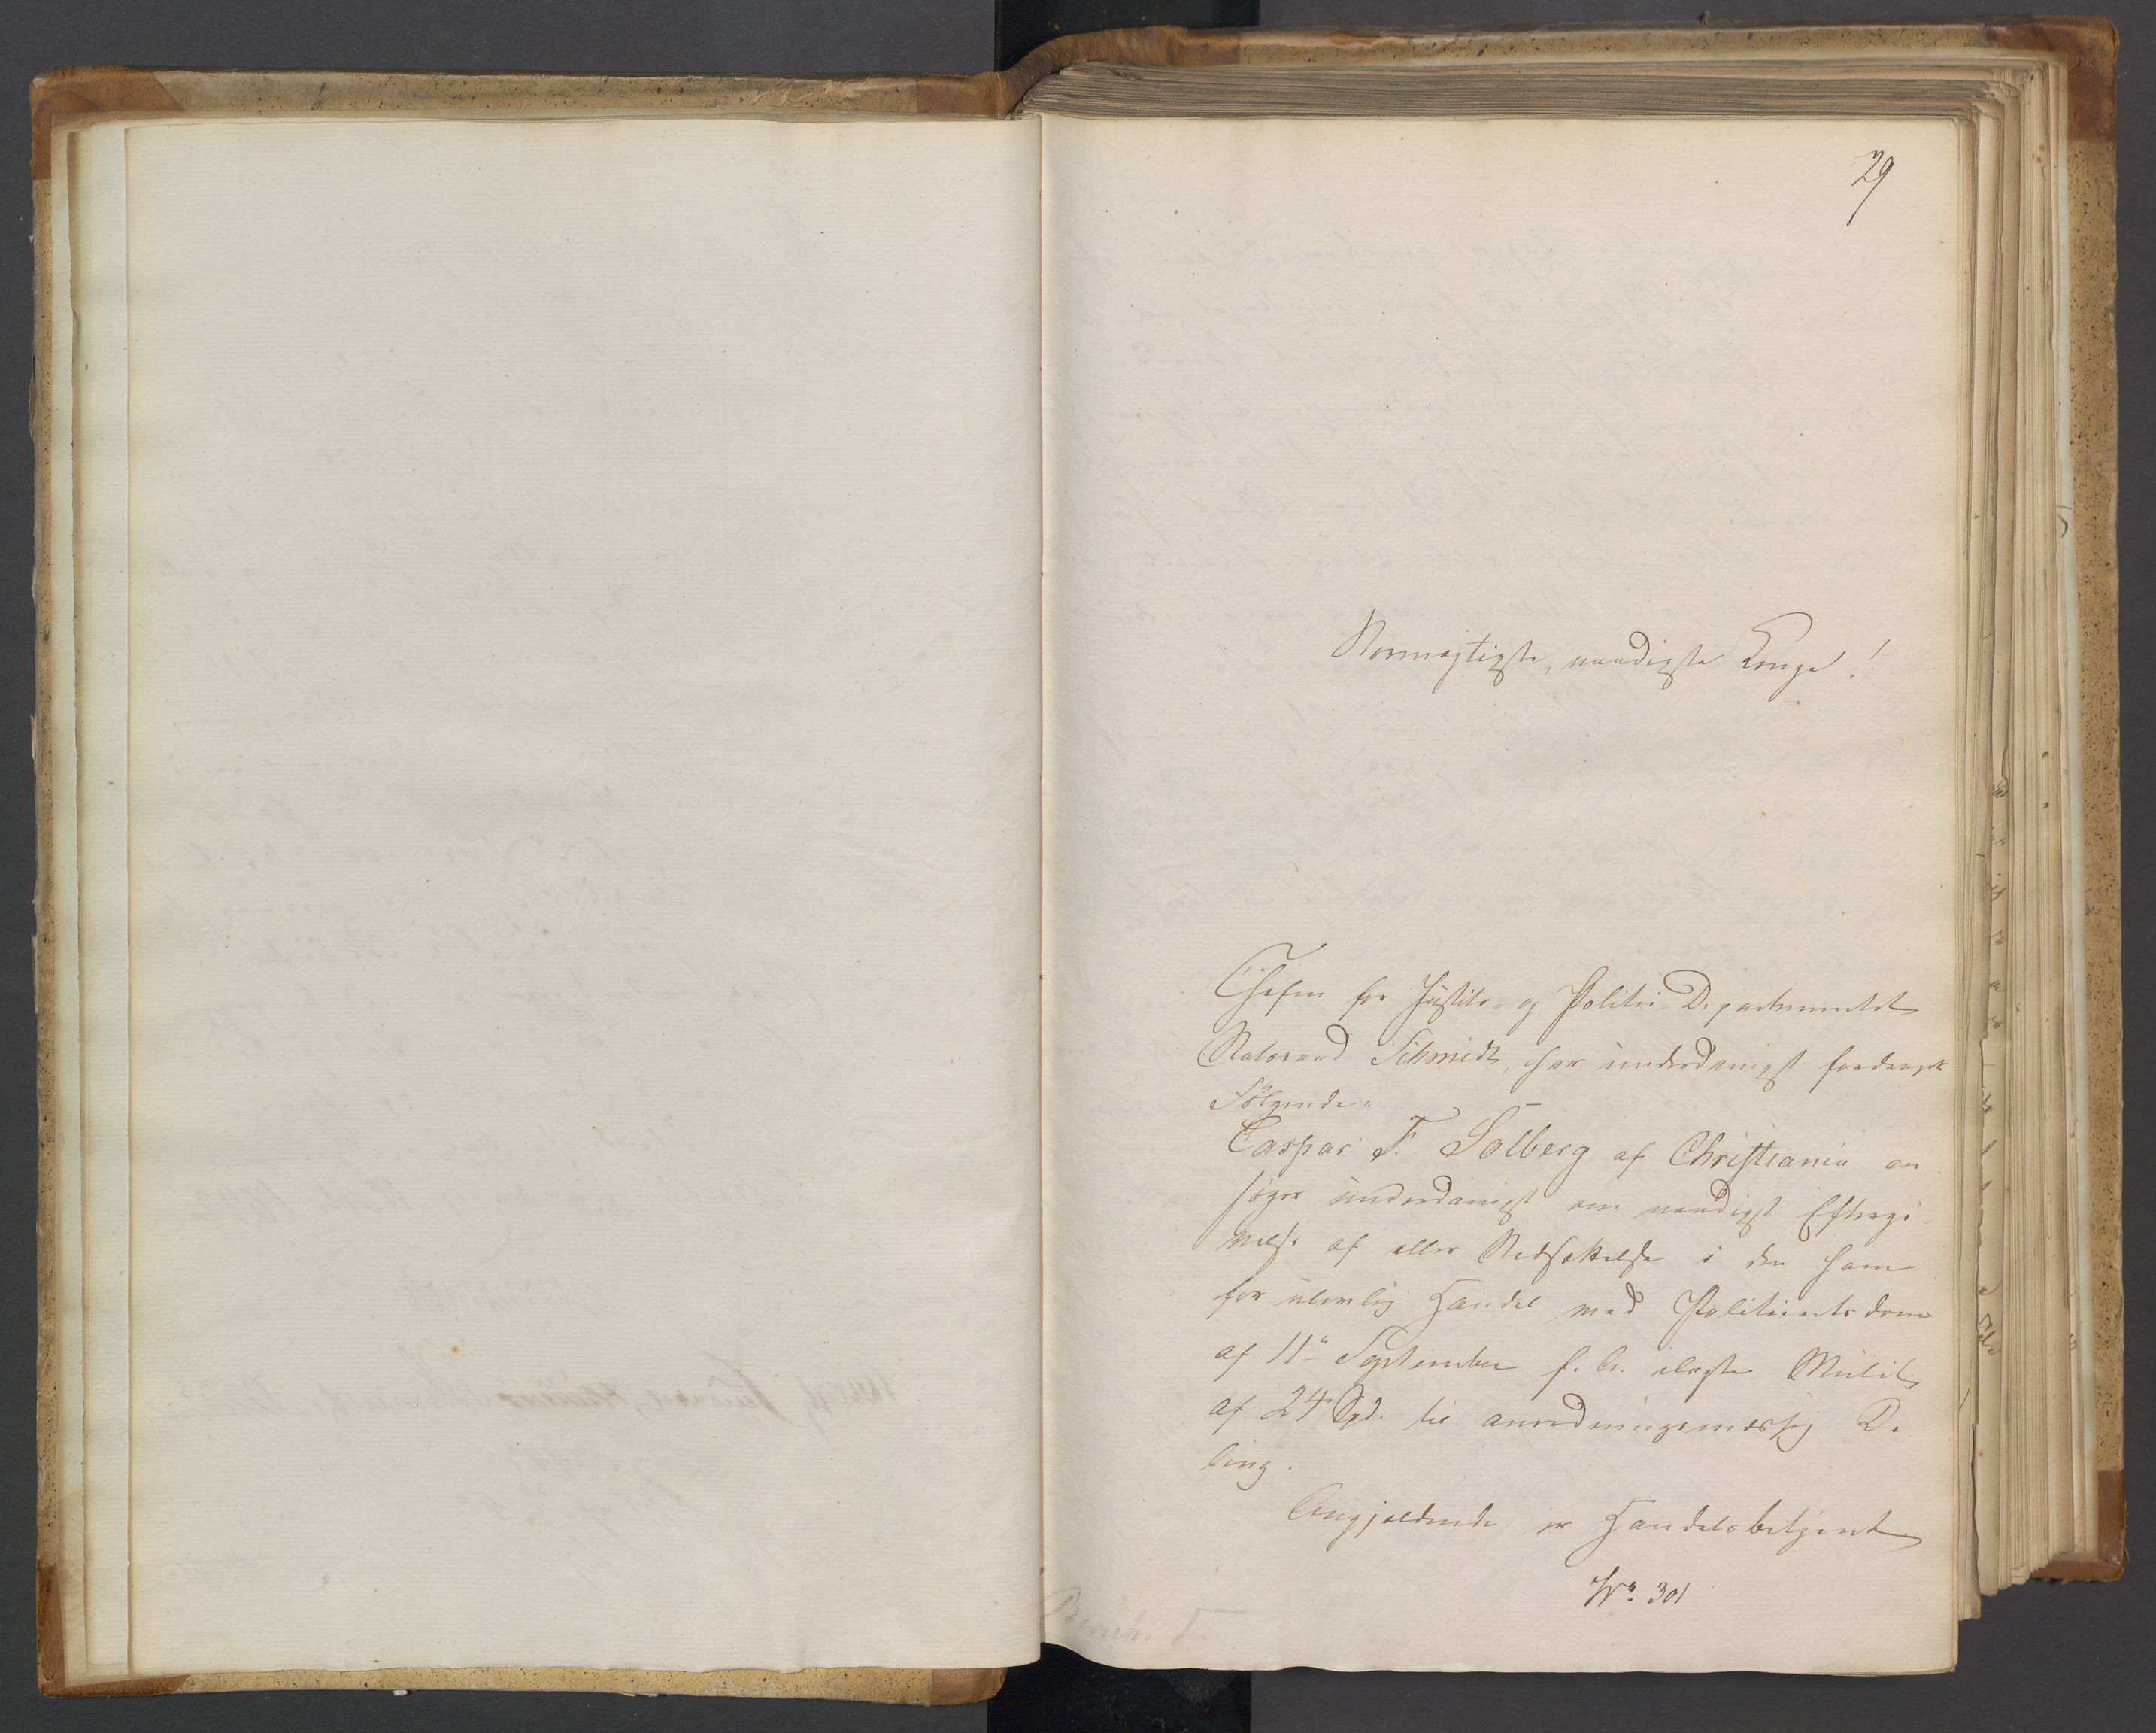 29
Stormægtigste, naadigste Konge!
Chefen for Justits- og Politie-Departementet
Statsraad Schmidt, har underdanigst foredraget
Følgende:
Caspar F. Solberg af Christiania an-
søger underdanigst om naadigst Eftergi-
velse af eller Nedsættelse i den ham
for ulovlig Handel med Politieretsdom
af 11te September f. A. ilagte Mulct
af 24 Spd. til anordningsmæssig De-
ling.
Angjældende er Handelsbetjent
No. 301